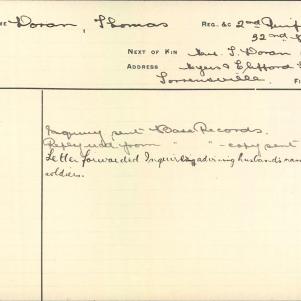 ME Doran, Thomas
REG. &C 2nd
32nd
NEXT OF KIN Mrs. T. Doran
ADDRESS Myers & Clifford
Torrensville.
Inquiry sent Base Records.
from " " - copy sent
Letter forwarded advising husband's
soldier.